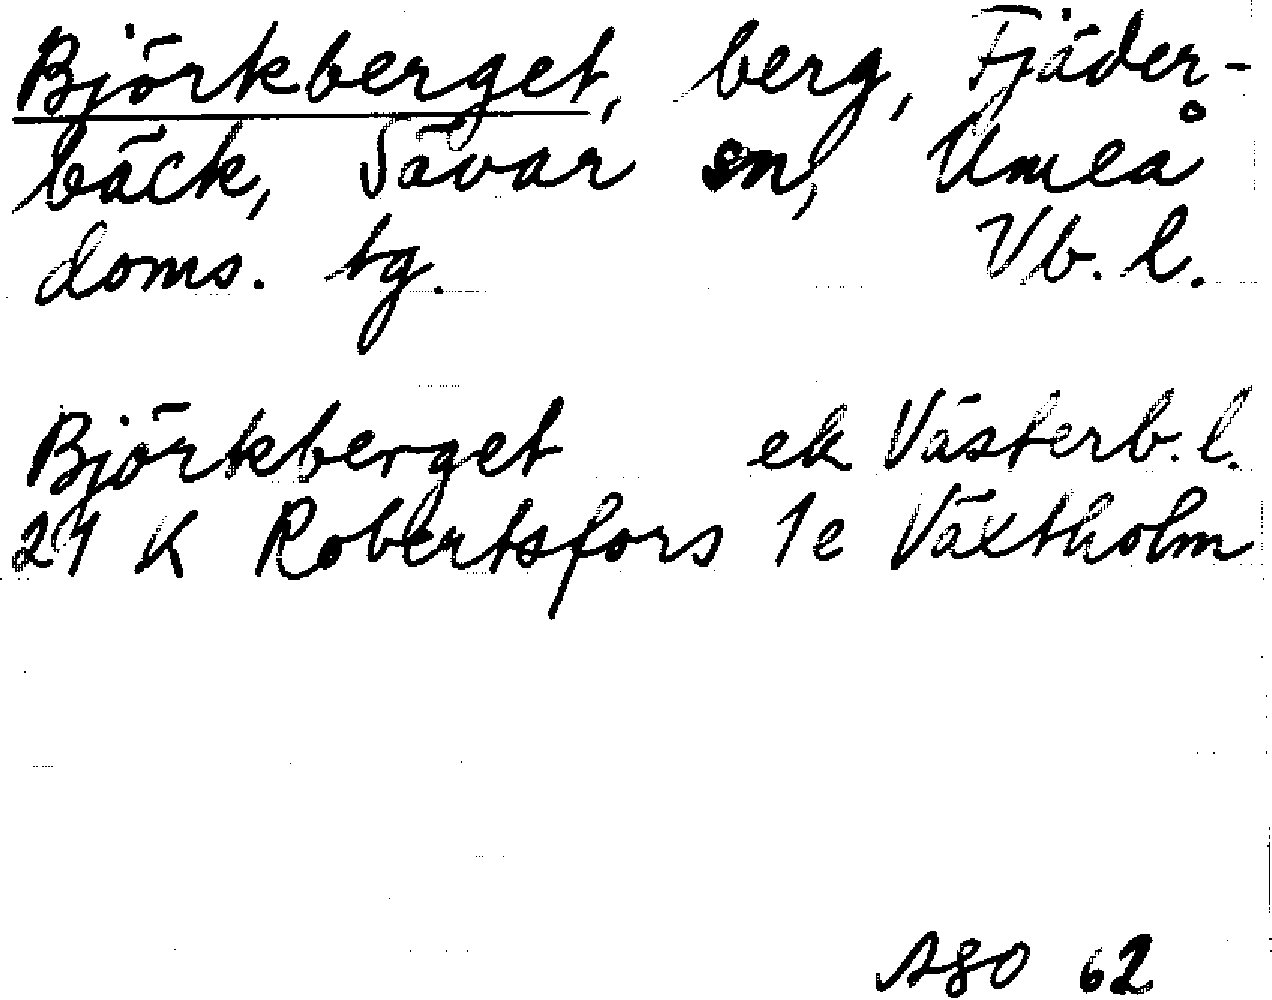 Björkberget, berg, Fjäder-
bäck, Sävar sn, Umeå
doms. tg. Vb. l.
Björkberget ek Västerb. l.
21 K Robertsfors 1e Växtholm
ASO 62